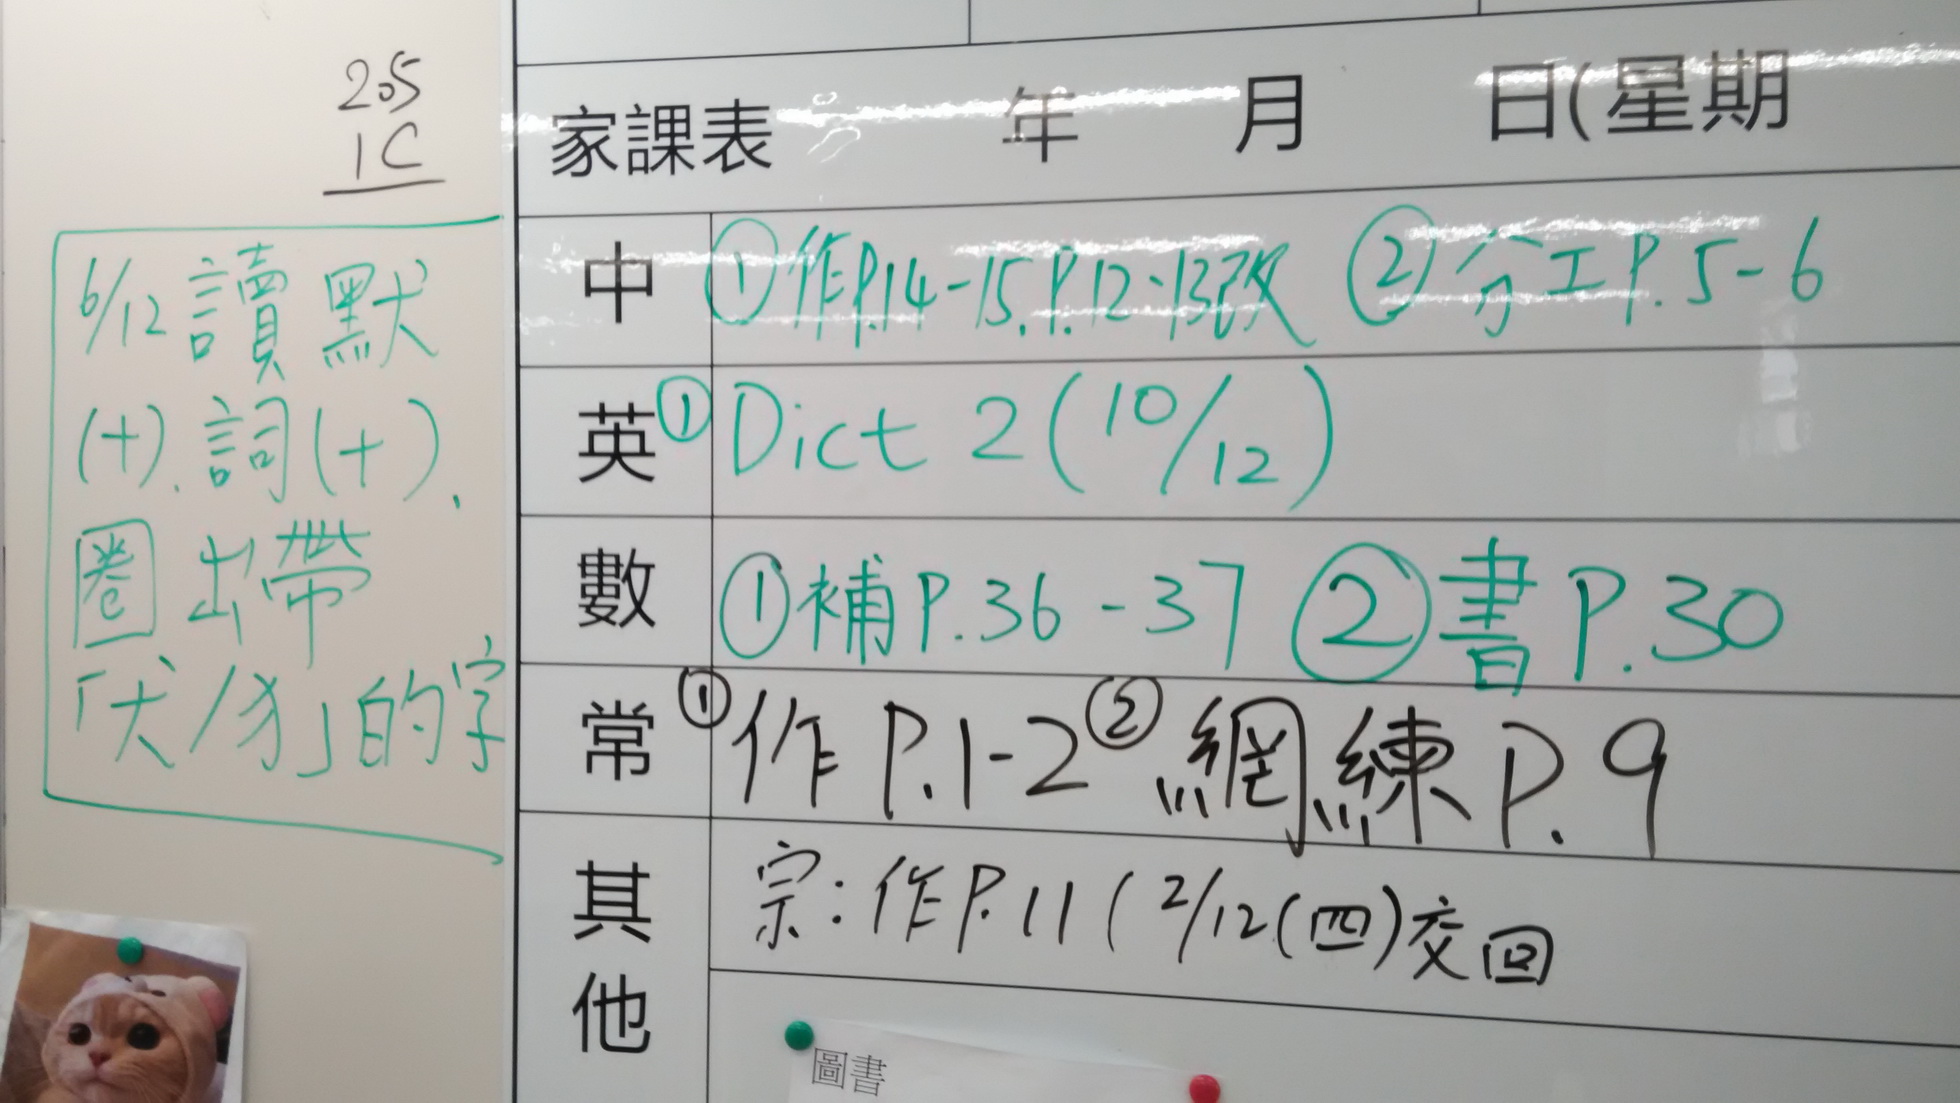 205
1C
6/12 讀默
(十).詞(十).
圈出帶
「犬/犭」的字
家課表 年 月 日(星期
中 ①作P.14-15.P.12-13改 ②分工P.5-6
英 ①Dict 2 (10/12)
數 ①補P.36-37 ②書P.30
常 ①作P.1-2 ②網練P.9
其他 宗:作P.11 (2/12(四)交回
圖書